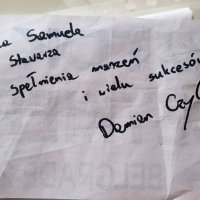 a Samuela
Stavarza
spełnienia marzeń
i wielu sukcesów
Damian Czy